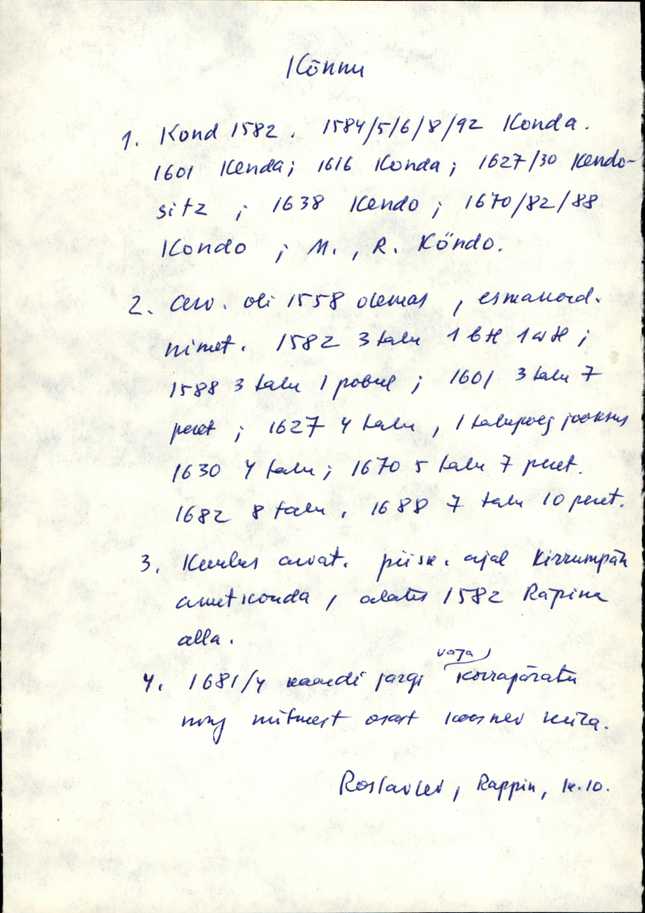 Kõnnu
1. Kond 1582. 1584/5/6/8/92 Konda.
1601 Kenda; 1616 Konda; 1627/30 Kendo-
sitz; 1638 Kendo; 1670/82/88
Kondo; M., R. Kõndo.
2. arv. oli 1558 olemas, esmakord.
nimet. 1582 3 talu
1588 3 talu 1 pobul; 1601 3 talu 7
peret; 1627 4 talu, 1 talupoeg jooksus
1630 4 talu; 1670 5 talu 7 peret.
1682 8 talu, 1688 7 talu 10 peret.
3. Kuulus arvat. piisk. ajal Kirrumpäh
ametkonda, alates 1582 Räpina
alla.
4. 1681/4 kaardi järgi väga korrapäratu
ning mitmest osast koosnev küla.
Roslavlev, Rappin, lk. 10.